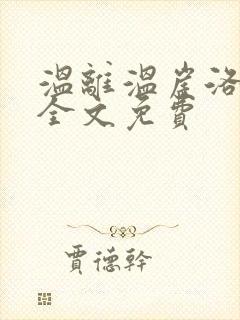 溫離溫崖洛
全文免費
賈德幹